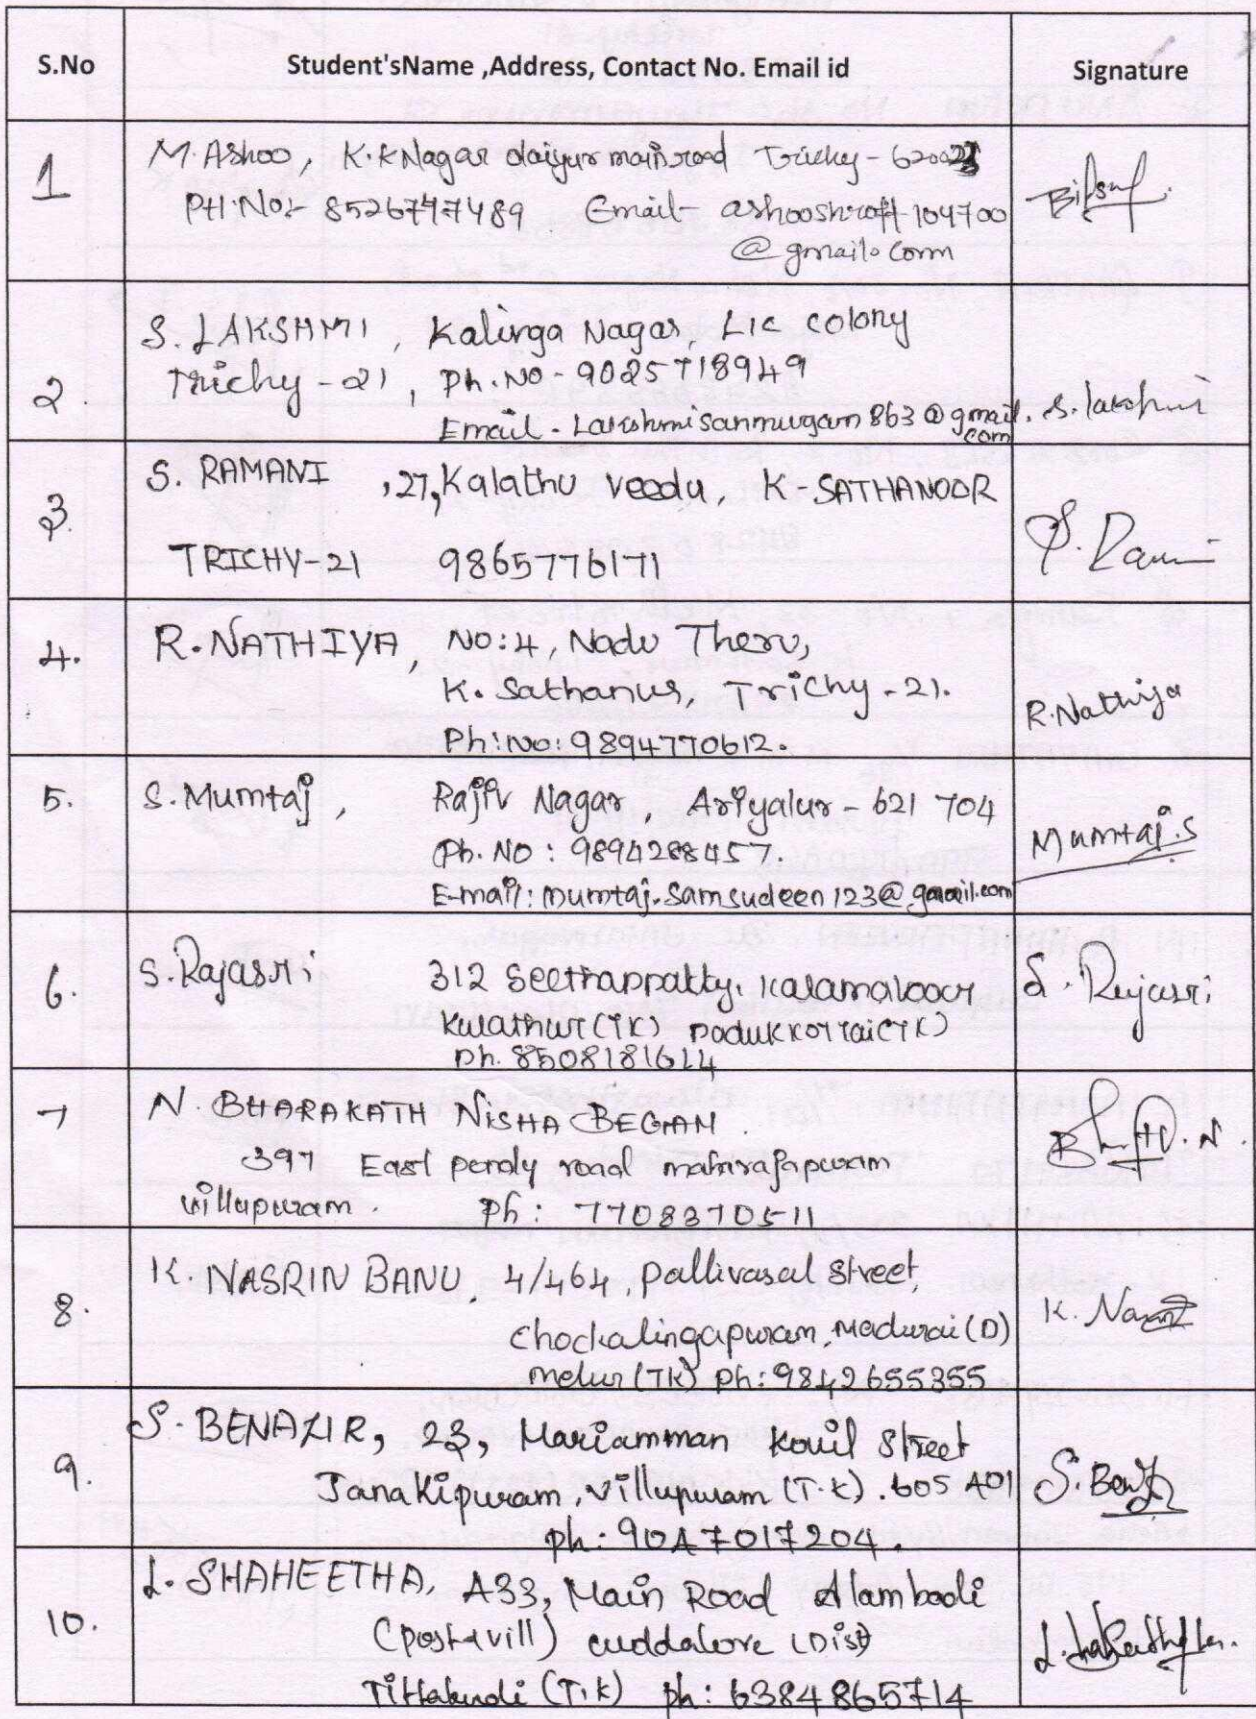 S.No Student'sName ,Address, Contact No. Email id Signature
1 M. Ashoo, K.K Nagar main road Trichy -
PH.No:- 8526747489 Email- @ gmail. Com
S. LAKSHMI, Kalinga Nagar, LIC colony
2 Trichy - 21, Ph.No - 9025718949 S. lakshmi
Email - Lakshmisanmugam863@gmail.
com
S. RAMANI ,27, Kalathu veedu, K-SATHANOOR
3. TRICHY-21 9865776171
4. R.NATHIYA, NO:4, Nadu Theru,
K. Sathanur, Trichy - 21. R.Nathiya
Ph:No: 9894770612.
5. S.Mumtaj, Rajiv Nagar, Ariyalur - 621 704
Ph. NO : 9894288457. Mumtaj.S
E-mail: mumtaj.samsudeen123@gmail.com
6. S.Rajasri 312 Seethappatty, S. Rajasri
Kulathur (TK)
Ph. 8508181614
7 N. BHARAKATH NISHA BEGAM.
397 East pondy road maharajapuram
villupuram. Ph: 7708370511
8. K. NASRIN BANU, 4/464, Pallivasal Street,
Chockalingapuram, Madurai (D)
Melur (TK) Ph: 9842655355
9. S. BENAZIR, 23, Mariamman Kovil Street
Janakipuram, Villupuram (T.K). 605 401
Ph: 9047017204.
10. L. SHAHEETHA, A33, Main Road Alambadi
(post & vill) cuddalore (Dist)
Tittakudi (T.K) ph: 6384865714